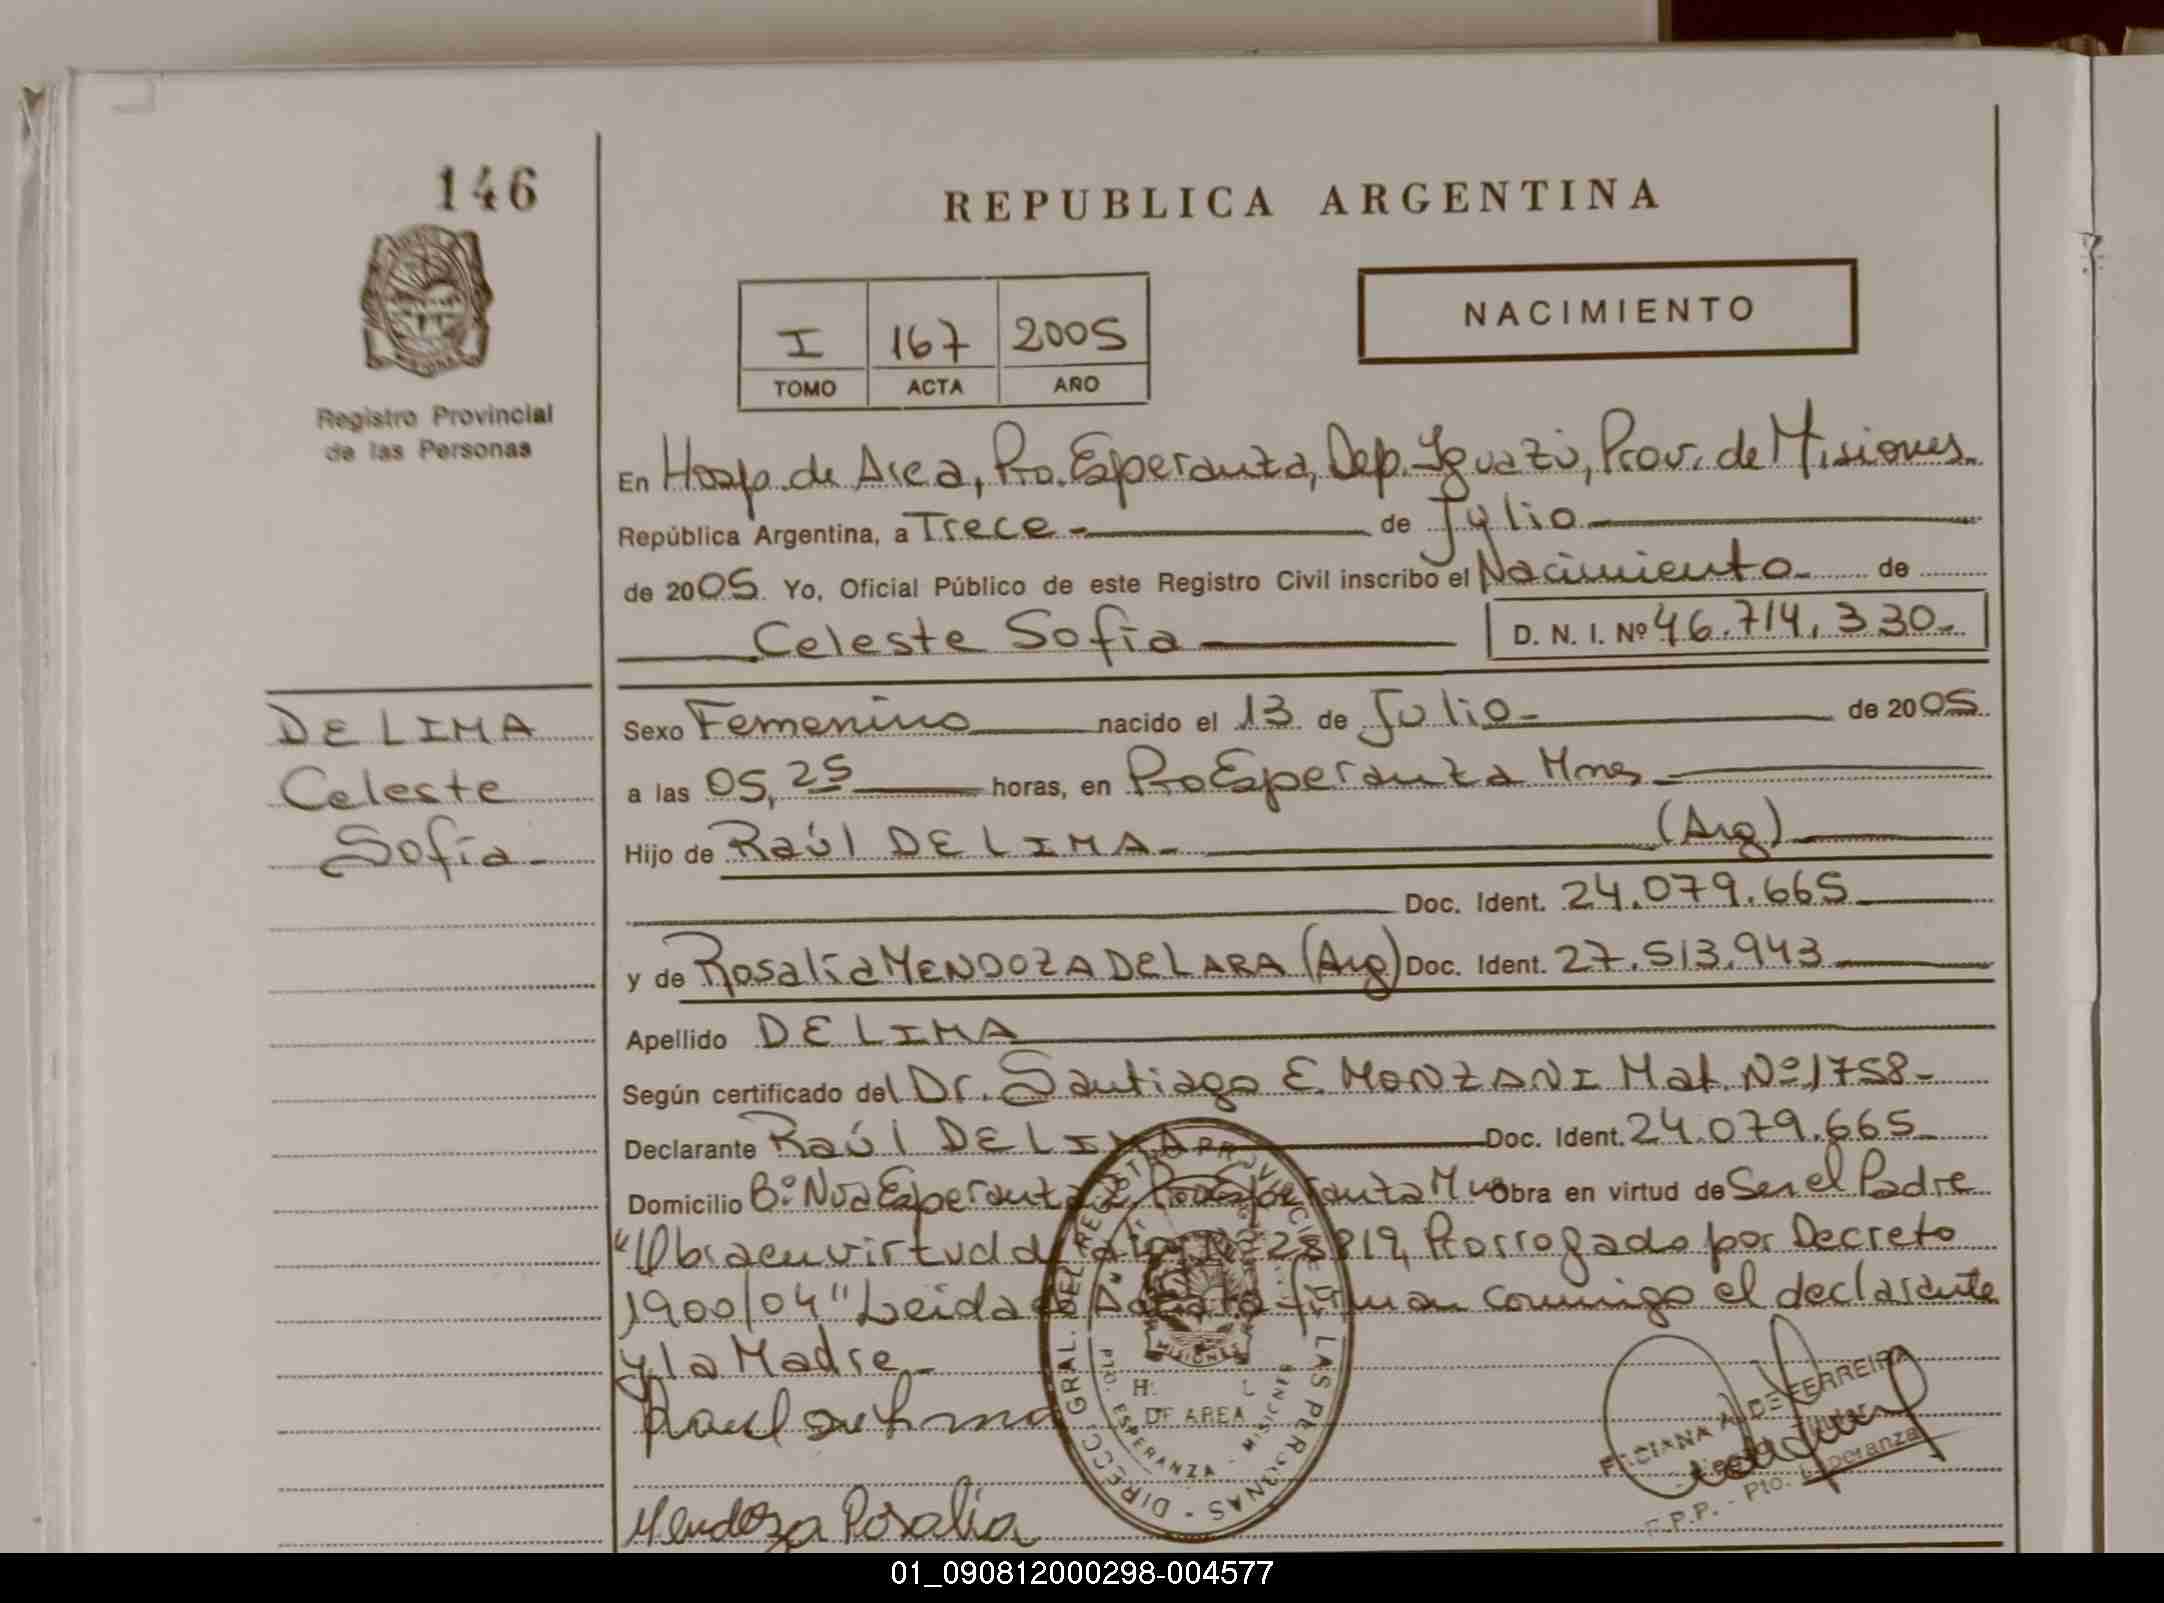 146
REPUBLICA ARGENTINA
NACIMIENTO
I 167 2005
TOMO ACTA AÑO
Registro Provincial
de las Personas
En Hosp. de Area, Pto. Esperanza, Dep. Iguazú, Prov. de Misiones
República Argentina, a Trece de Julio
de 2005. Yo, Oficial Público de este Registro Civil inscribo el Nacimiento de
Celeste Sofía D. N. I. Nº 46.714.330
DE LIMA
Celeste
Sofía
Sexo Femenino nacido el 13 de Julio de 2005
a las 05,25 horas, en Pto Esperanza Mnes
Hijo de Raúl DE LIMA (Arg)
Doc. Ident. 24.079.665
y de Rosalía MENDOZA DE LARA (Arg) Doc. Ident. 27.513.943
Apellido DE LIMA
Según certificado del Dr. Santiago E. MONZANI Mat. Nº 1758
Declarante Raúl DE LIMA Doc. Ident. 24.079.665
Domicilio Bº Nva Esperanza Obra en virtud de Ser el Padre
"Obra en virtud Prorrogado por Decreto
1900/04" Leída el Acta firman conmigo el declarante
y la Madre
Mendoza Rosalia
DIRECC. GRAL. DEL REGISTRO PROVINCIAL DE LAS PERSONAS
MISIONES
DE AREA
PTO. ESPERANZA - MISIONES
A. DE FERREIRA
Pto. Esperanza
01_090812000298-004577